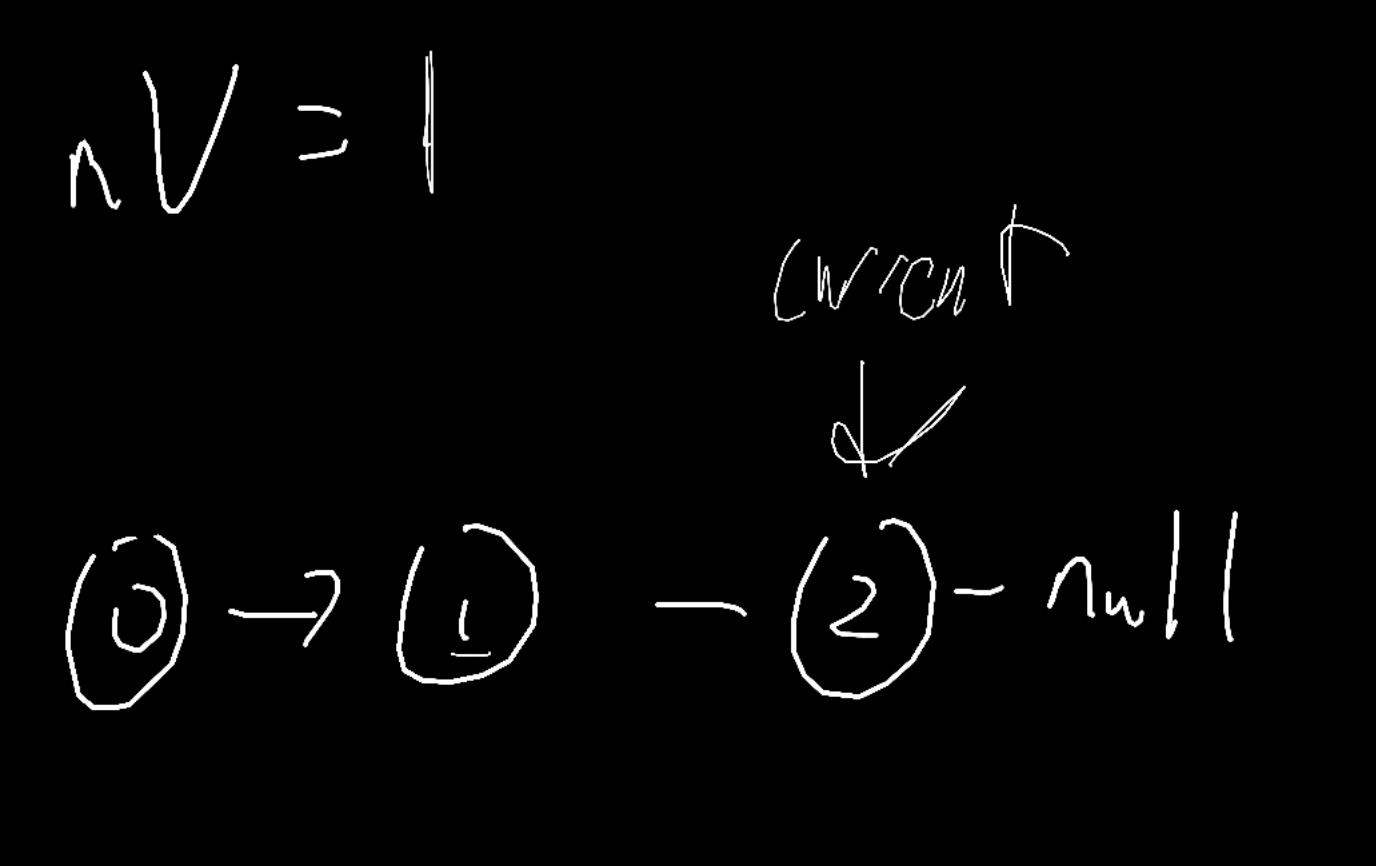 nV = 1
current
0 → 1 - 2 - null